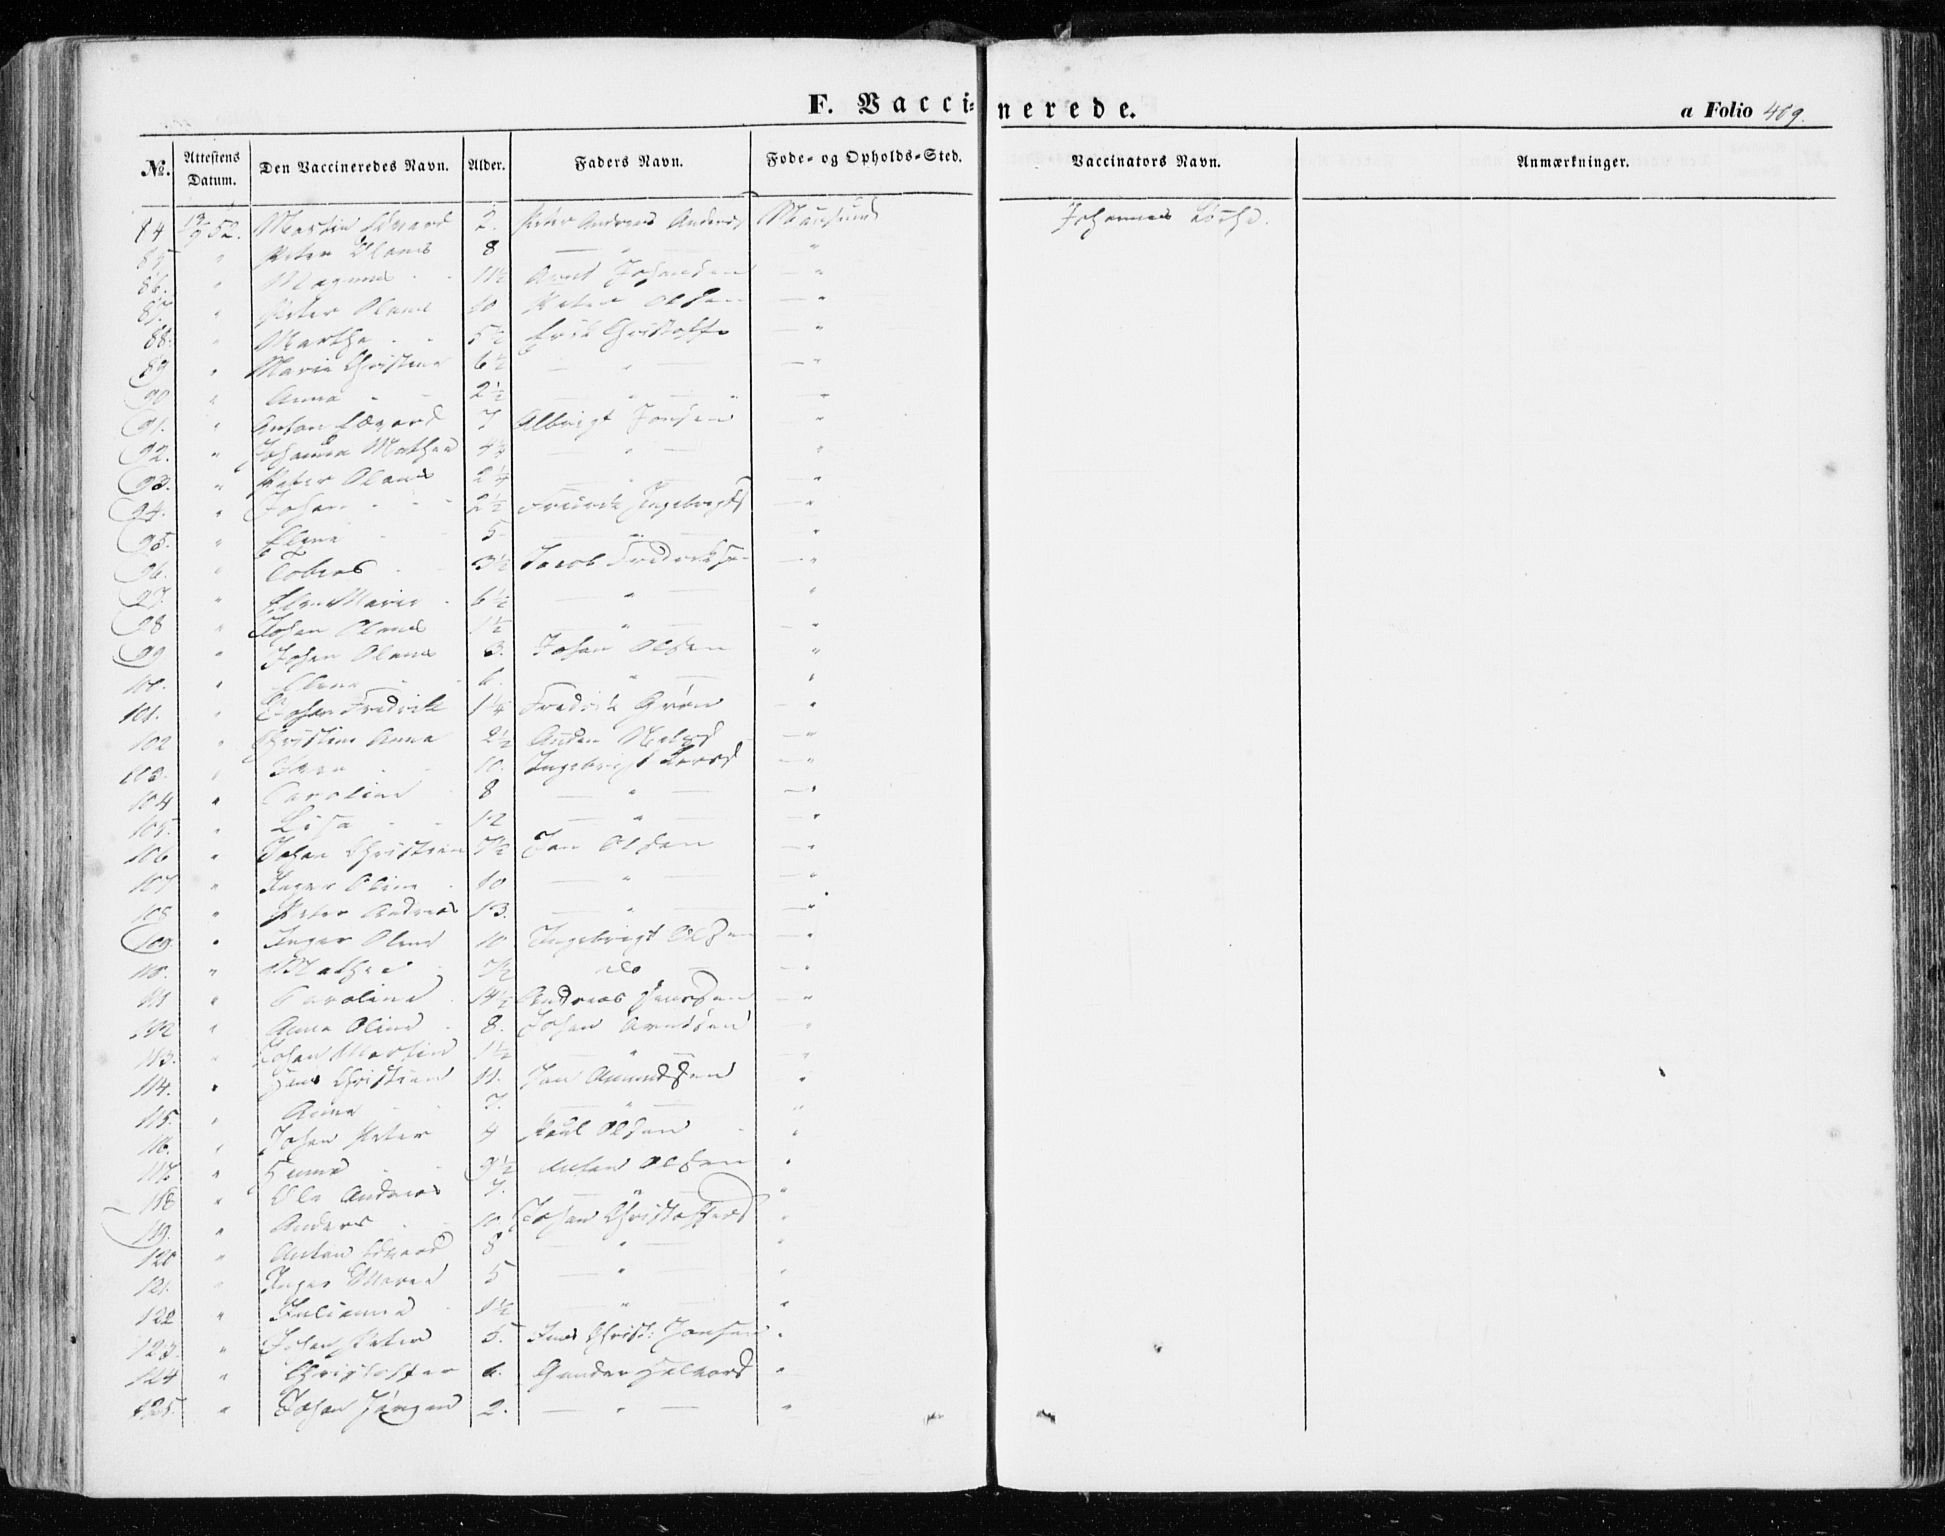 F. Vaccinerede.
a Folio 409.
№. Attestens Datum. Den Vaccineredes Navn. Alder. Faders Navn. Føde- og Opholds-Sted. Vaccinators Navn. Anmærkninger.
84 52. Martin Edvard 2. Peter Andreas Anders Mausund Johannes
85 " Peter Olaus 8 — " — "
86. " Magnus 11½ Arnt Johansen — "
87. " Peter Olaus 10 Peter Olsen — "
88. " Martha 5½ Erik Christoffe — "
89 " Marie Christine 6½ — " — — "
90 " Anna 2½ — " " — "
91. " Anton Edvard 7 Albrigt Jonsen — "
92. " Johanna Mathea 4¼ — " — "
93. " Peter Olaus 2¼ — " — — "
94. " Johan 2½ Fredrik Ingebrigts — "
95. " Elena 5 — " — "
96. " Tobias 3½ Jacob Fredriksen — "
97. " Elen Marie 6½ — " — "
98 " Johan Olaus 1½ — " — "
99 " Johan Olaus 3. Johan Olsen "
100. " Elena 6. " — "
101. " Johan Fredrik 1¼ Fredrik Grøn — "
102 " Christine Anna 2½ — "
103. " 10. Ingebrigt — "
104 " Caroline 8 — " — — "
105. " Lisa 12 — " — — "
106 " Johan Christian 7½ Jan Olsen — "
107 " Inger Oline 10 — " — — "
108 " Peter Andreas 13. — " — — "
109. " Inger Olina 10 Ingebrigt Olsen — "
110. " Mathea 7½ do — — "
111 " Caroline 14½ Andreas Jenssen — "
112 " Anna Oline 8. Johan Arntsen "
113. " Johan Martin 1½ — " — "
114. " Jens Christian 11. Jan Amundsen — "
115. " Anna 7. — " — "
116. " Johan Peter 4 Paul Olsen "
117. " 9½ Anton Olsen "
118 " Ole Andreas 7. — " — "
119. " Anders 10 Johan Christoffers "
120 " Anton Edvard 8 — " — "
121. " Inger Maria 5 — " — "
122 " Julianna 1½ — " — "
123. " Johan Peter 5. Jens Christ: Jonsen "
124 " Christoffer 6. Gunder Halvors "
125. " Johan Jørgen 2. — " — "